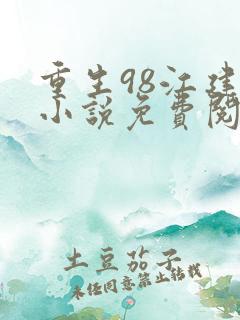 重生98江建
小说免费阅
土豆茄子
未经同意禁止转载